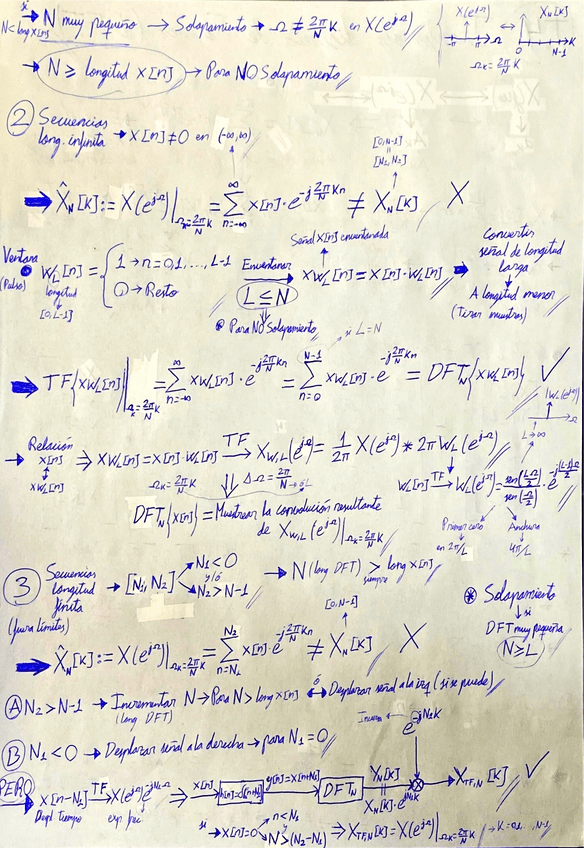 si
N < long x[n]
→ N muy pequeño → Solapamiento → Ω ≠ 2π/N K en X(e^jΩ)
X(e^jΩ) ↔ X_N[K]
-π π Ω N-1 K
Ω_K = 2π/N K
→ N ≥ longitud x[n] → Para NO Solapamiento
② Secuencias long. infinita → x[n] ≠ 0 en (-∞,∞)
[0,N-1]
[N₁,N₂]
⇒ X̂_N[K] := X(e^jΩ)|_Ω_K=2π/N K = Σ_{n=-∞}^{∞} x[n]·e^{-j 2π/N Kn} ≠ X_N[K] X
Señal x[n] enventanada
Ventana (Pulso) W_L[n] = { 1 → n=0,1,...,L-1
0 → Resto
longitud
[0,L-1]
Enventanar → xw_L[n] = x[n]·W_L[n] ⇒ Convertir señal de longitud larga
A longitud menor
(Tirar muestras)
L ≤ N
Para NO Solapamiento
si L=N
⇒ TF{xw_L[n]}|_Ω_K=2π/N K = Σ_{n=-∞}^{∞} xw_L[n]·e^{-j 2π/N Kn} = Σ_{n=0}^{N-1} xw_L[n]·e^{-j 2π/N Kn} = DFT_N{xw_L[n]} ✓
|W_L(e^jΩ)|
Ω
L→∞
→ Relación x[n] ↕ xw_L[n] ⇒ xw_L[n] = x[n]·W_L[n] —TF→ X_W,L(e^jΩ) = 1/2π X(e^jΩ) * 2π W_L(e^jΩ)
Ω_K = 2π/N K ⇓ ΔΩ = 2π/N
W_L[n] —TF→ W_L(e^jΩ) = sen(LΩ/2)/sen(Ω/2)·e^{-j(L-1)Ω/2}
DFT_N{x[n]} = Muestrear la convolución resultante
de X_W,L(e^jΩ)|_Ω_K=2π/N K
Primer cero en 2π/L
Anchura 4π/L
③ Secuencias longitud finita (fuera límites) → [N₁,N₂]
N₁ < 0
y/ó
N₂ > N-1
→ N (long DFT) > siempre long x[n]
⊛ Solapamiento
si
DFT muy pequeña
N ≥ L
[0,N-1]
⇒ X̂_N[K] := X(e^jΩ)|_Ω_K=2π/N K = Σ_{n=N₁}^{N₂} x[n]·e^{-j 2π/N Kn} ≠ X_N[K] X
Ⓐ N₂ > N-1 → Incrementar N → Para N > long x[n] ↔ ó Desplazar señal a la izq (si se puede)
(long DFT)
Ⓑ N₁ < 0 → Desplazar señal a la derecha → para N₁ = 0
Inversa
PERO
x[n-N₁] —TF→ X(e^jΩ)e^{-jN₁Ω} ⇒ x[n] → → y[n]=x[n+N₁] → DFT_N → Y_N[K] → ⊗ → X_TF,N[K] ✓
Despl. tiempo
si → x[n]=0
n < N₁
y
N > (N₂-N₁)
⇒ X_TF,N[K] = X(e^jΩ)|_Ω_K=2π/N K → K=0,1,..,N-1